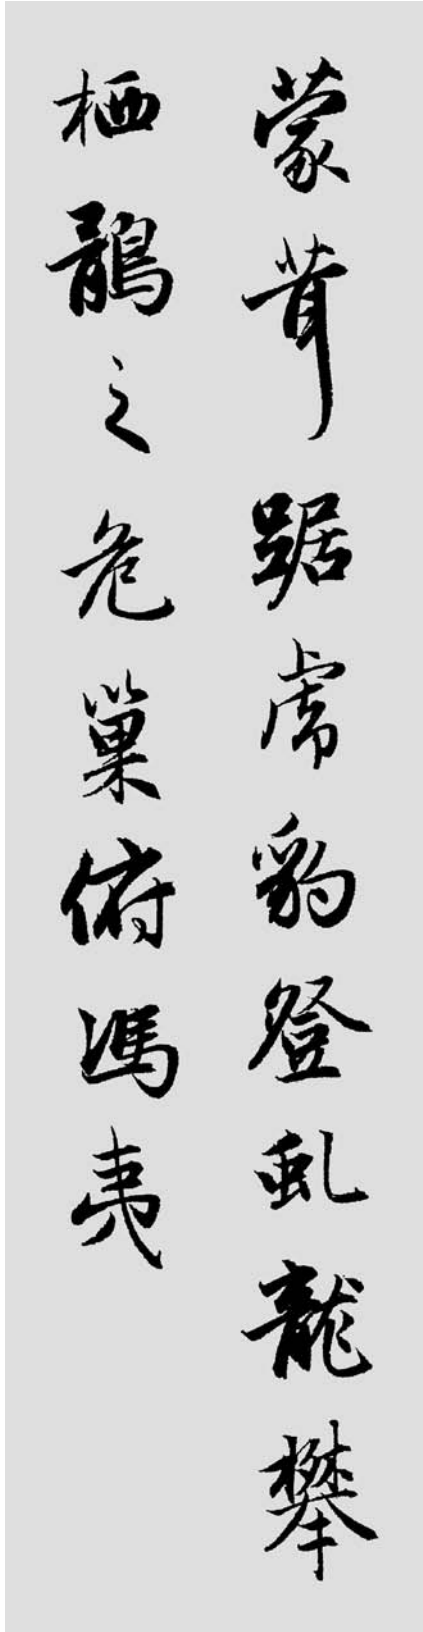 蒙茸踞虎豹登虬龍攀
栖鶻之危巢俯馮夷